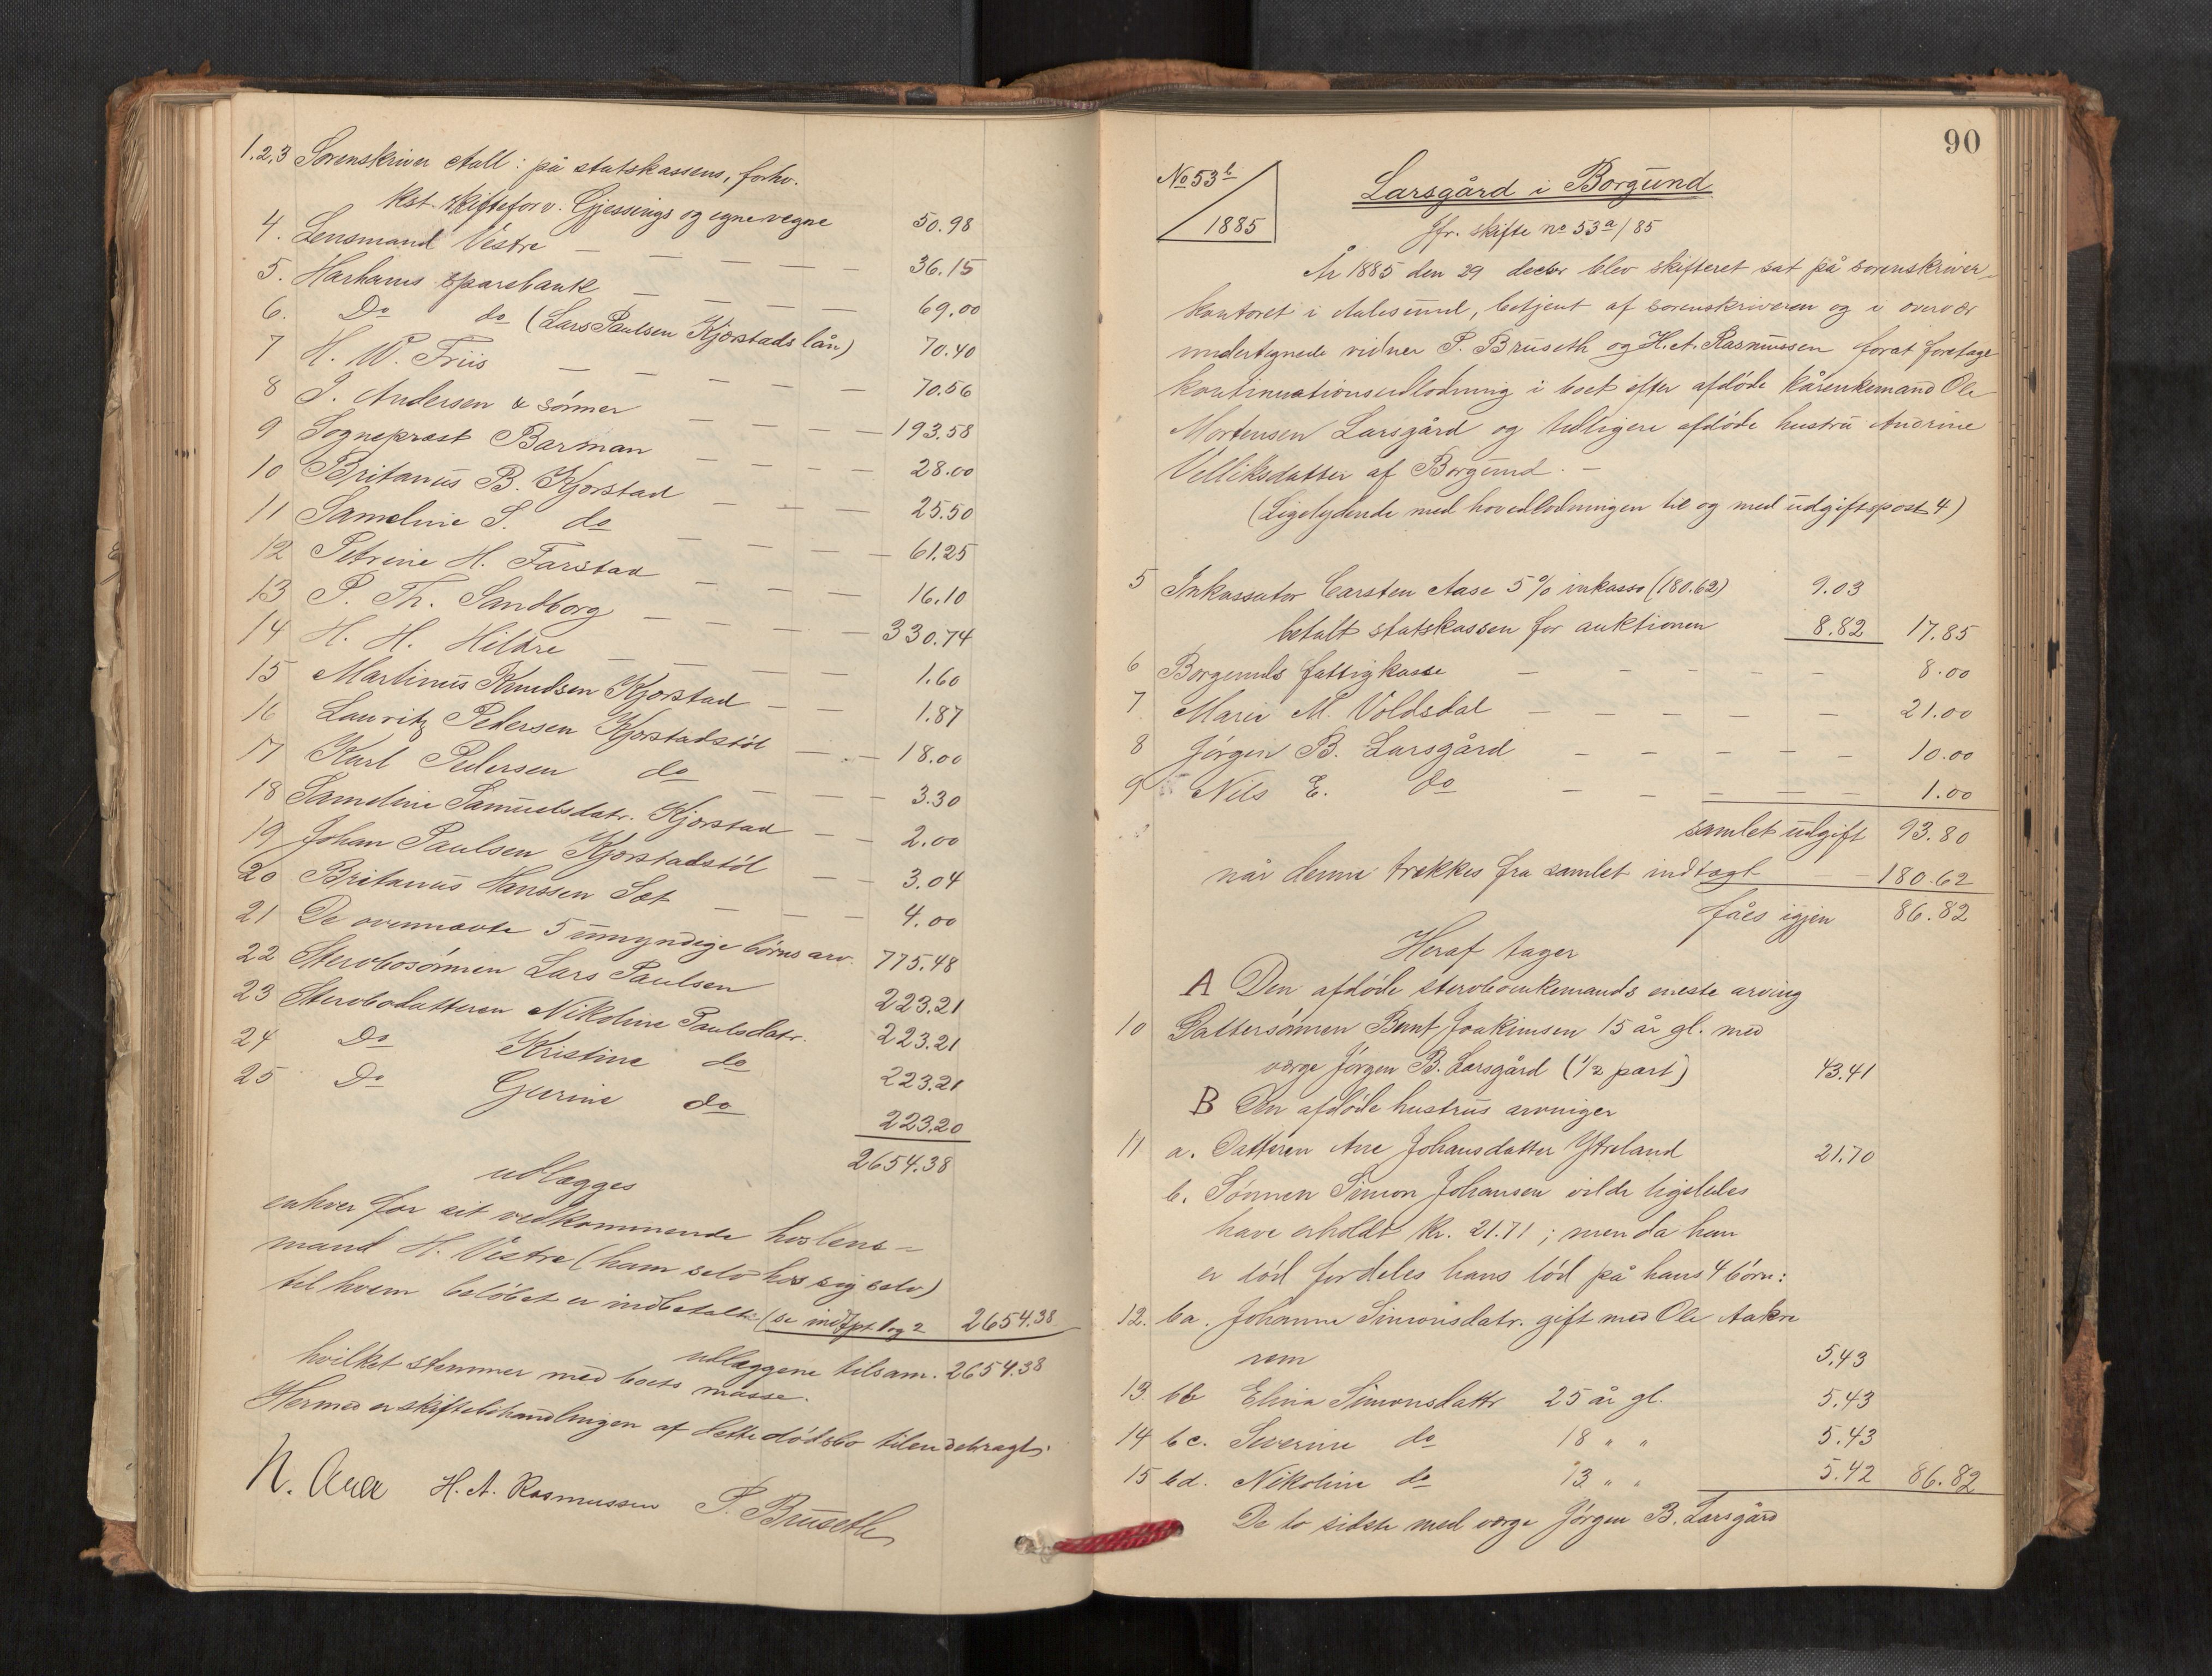 1.2.3 Sorenskriver Aall: på statskassens, forhv.
kst. skifteforv. Gjessings og egne vegne 50.98
4. Lensmand Vestre — — — — — 36.15
5. Harhams sparebank — — — — 69.00
6. Do do (Lars Paulsen Kjørstads lån) 70.40
7 H. W. Friis — — — — — — 70.56
8 J. Andersen & sønner — — — — 193.58
9 Sognepræst Barman — — — — 28.00
10 Britanus B. Kjørstad — — — 25.50
11 Sameline S. do — — — — — 61.25
12 Petrine H. Farstad — — — 16.10
13 P. Th. Sandborg — — — — 330.74
14 H. H. Hildre — — — — — 1.60
15 Martinus Knudsen Kjørstad — — 1.87
16 Lauritz Pedersen Kjørstadstöl — — 18.00
17 Karl Pedersen do — — — 3.30
18 Sameline Samuelsdatr. Kjørstad — — 2.00
19 Johan Paulsen Kjørstadstöl — — 3.04
20 Britanus Hanssen Sæt — — — 4.00
21 De ovennævnte 5 umyndige børns arv. 775.48
22 Stervbosønnen Lars Paulsen 223.21
23 Stervbodatteren Nikoline Paulsdatr. 223.21
24 Do Kristine do 223.21
25 Do Gurine do 223.20
2654.38
udlægges
enhver for sit vedkommende hos lens-
mand H. Vestre (ham selv hos sig selv)
til hvem beløbet er indbetalt (se indtpt. 1 og 2 2654.38
udlæggene tilsam. 2654.38
hvilket stemmer med boets masse.
Hermed er skiftebehandlingen af dette dødsbo tilendebragt.
N. Aall H. A. Rasmussen P. Bruseth
90
No 53b
1885
Larsgård i Borgund
Jfr. skifte no 53a/85
År 1885 den 29 decbr blev skifteret sat på sorenskriver-
kontoret i Aalesund, betjent af sorenskriveren og i overvær
undertegnede vidner P. Bruseth og H. A. Rasmussen forat foretage
kontinuationsudlodning i boet efter afdøde kårenkemand Ole
Mortensen Larsgård og tidligere afdøde hustru Andrine
Velliksdatter af Borgund. —
(Ligelydende med hovedlodningen til og med udgiftspost 4)
5 Inkassator Carsten Aase 5 % inkasso (180.62) 9.03
betalt statskassen for auktionen 8.82 17.85
6 Borgunds fattigkasse — — — — 8.00
7 Marie M. Voldsdal — — — — — 21.00
8 Jørgen B. Larsgård — — — — — 10.00
9 Nils E. do — — — — — 1.00
samlet udgift 93.80
når denne trækkes fra samlet indtægt — 180.62
fåes igjen 86.82
Heraf tager
A Den afdøde stervboenkemands eneste arving
10 Dattersønnen Bernt Joakimsen 15 år gl. med
værge Jørgen B. Larsgård (1/2 part) 43.41
B Den afdøde hustrus arvinger
11 a. Datteren Ane Johansdatter Ytreland 21.70
b. Sønnen Simon Johansen vilde ligeledes
have erholdt kr. 21.71; men da han
er død fordeles hans lod på hans 4 børn:
12. ba. Johanne Simonsdatr. gift med Ole Aakre
rem 5.43
13. bb Elina Simonsdattr 25 år gl. 5.43
14 bc. Severine do 18 " " 5.43
15 bd. Nikoline do 13 " " 5.42 86.82
De to sidste med værge Jørgen B. Larsgård